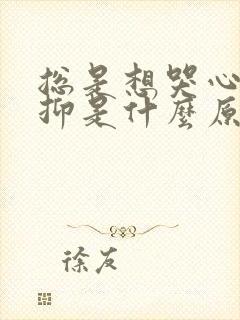 总是想哭心
抑是什麼原
徐友